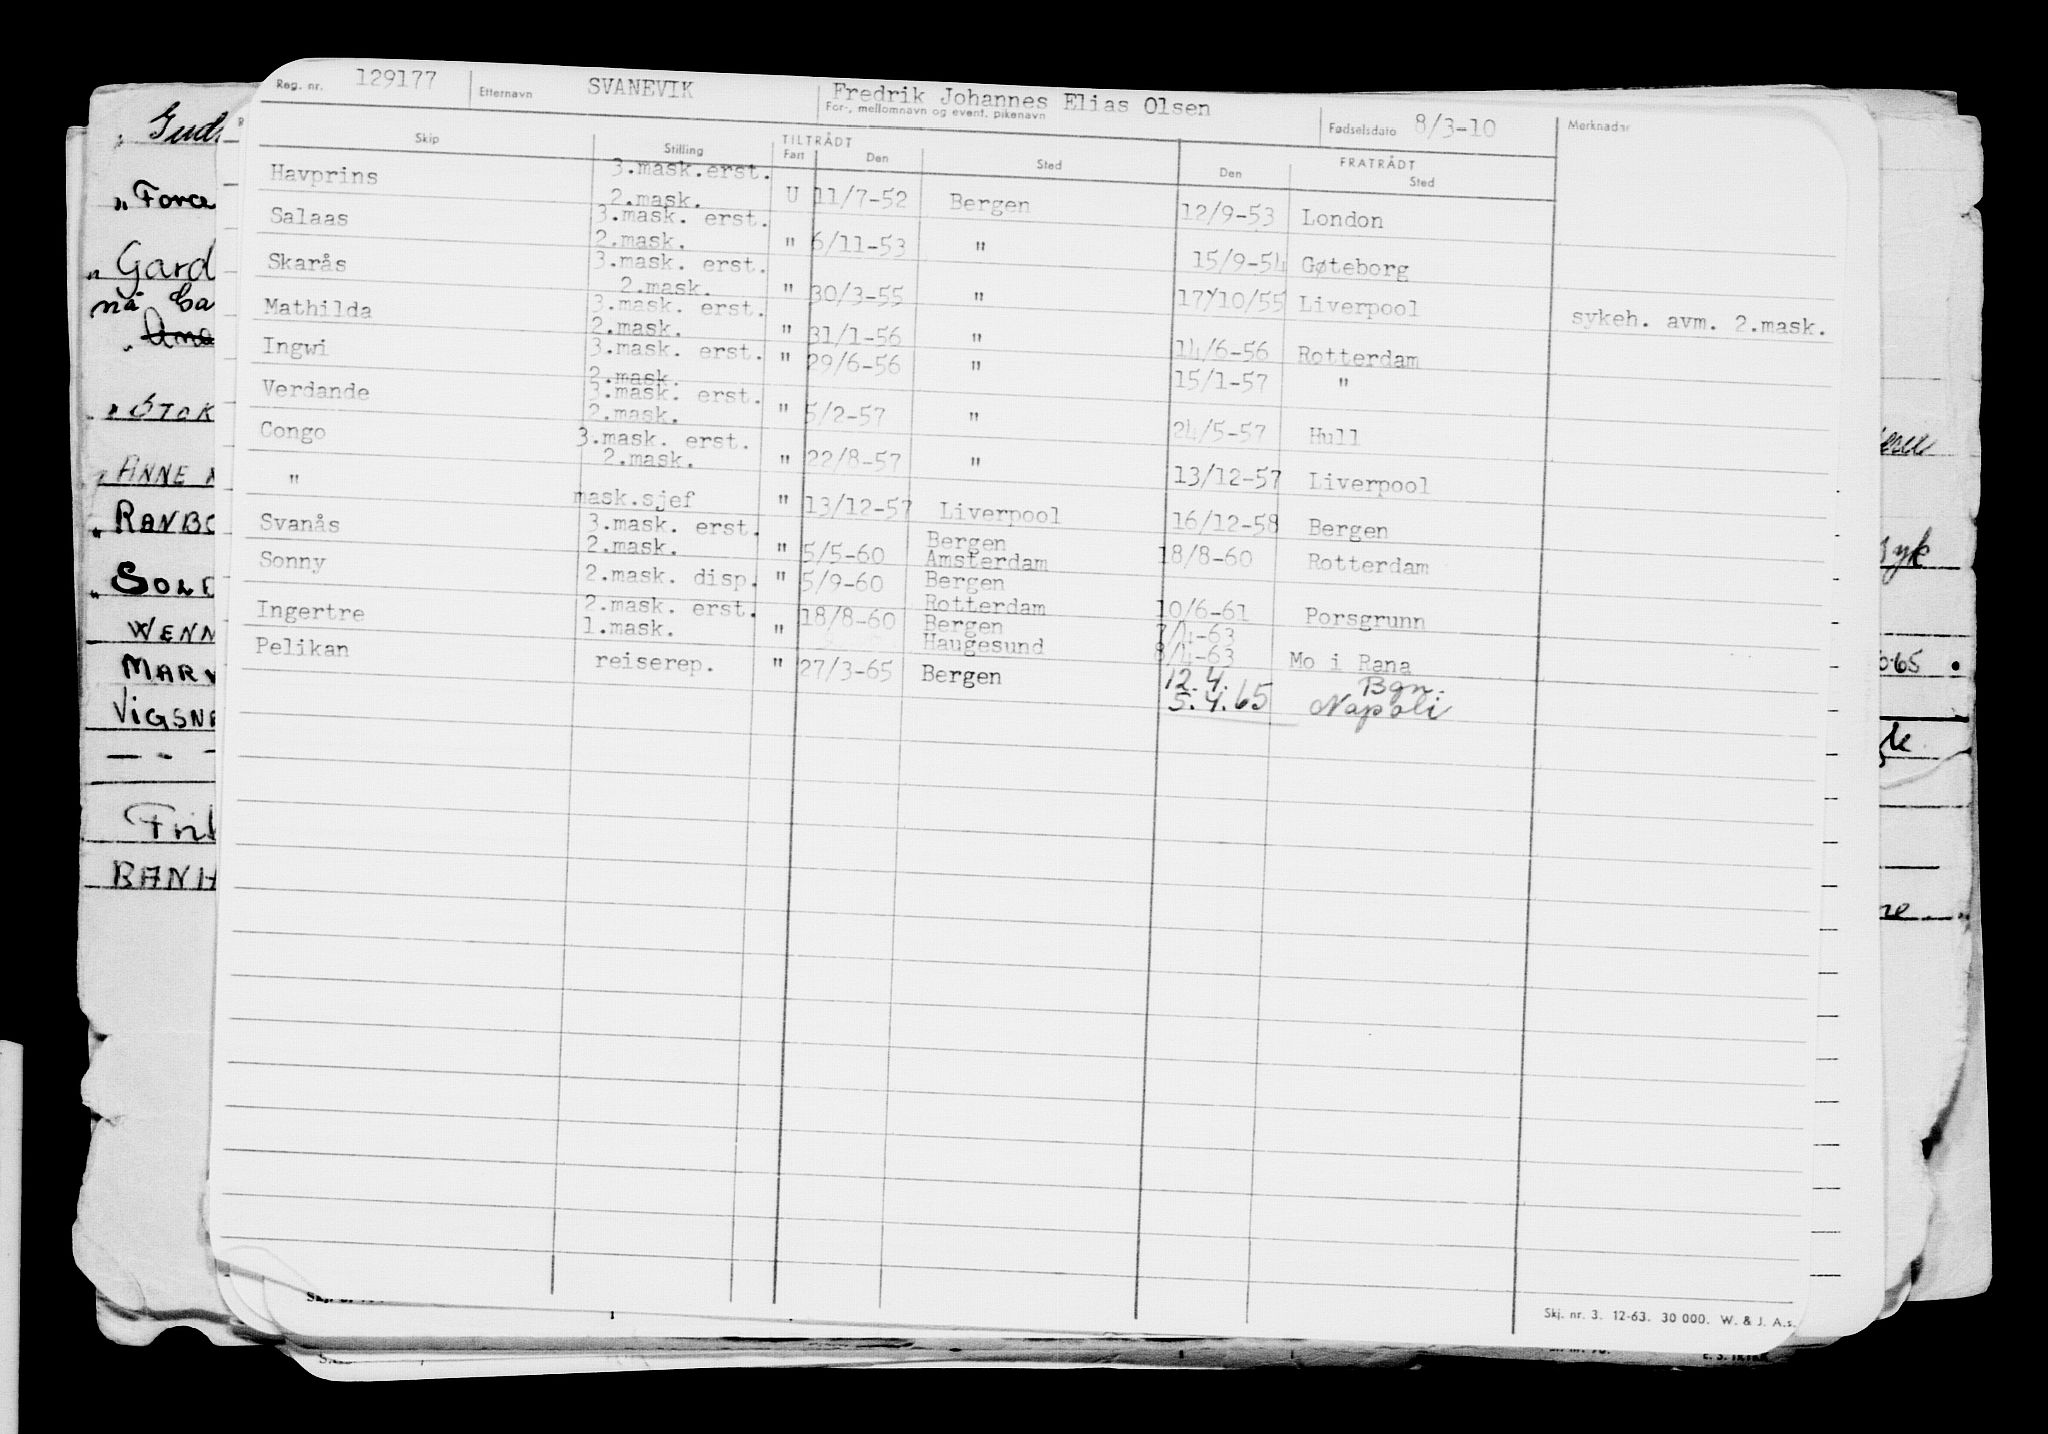 Reg. nr. 129177 Etternavn SVANEVIK Fredrik Johannes Elias Olsen For-, mellomnavn og event. pikenavn Fødselsdato 8/3-10 Merknader
Skip Stilling TILTRÅDT Fart Den Sted FRATRÅDT Den Sted
Havprins 3.mask.erst. 2.mask. U 11/7-52 Bergen 12/9-53 London
Salaas 3.mask. erst. 2.mask. " 6/11-53 " 15/9-54 Gøteborg
Skarås 3.mask. erst. 2.mask. " 30/3-55 " 17/10/55 Liverpool sykeh. avm. 2.mask.
Mathilda 3.mask. erst. 2.mask. " 31/1-56 " 14/6-56 Rotterdam
Ingwi 3.mask. erst. 2.mask. " 29/6-56 " 15/1-57 "
Verdande 3.mask. erst. 2.mask. " 5/2-57 " 24/5-57 Hull
Congo 3.mask. erst. 2.mask. " 22/8-57 " 13/12-57 Liverpool
" mask.sjef " 13/12-57 Liverpool 16/12-58 Bergen
Svanås 3.mask. erst. 2.mask. " 5/5-60 Bergen Amsterdam 18/8-60 Rotterdam
Sonny 2.mask. disp. " 5/9-60 Bergen Rotterdam 10/6-61 Porsgrunn
Ingertre 2.mask. erst. 1.mask. " 18/8-60 Bergen Haugesund 7/4-63 8/4-63 Mo i Rana
Pelikan reiserep. " 27/3-65 Bergen 12.4. 5.4.65 Bgn. Napoli
Skj. nr. 3. 12-63. 30 000. W. & J. A.s.
„ Force
„ Gard
nå
ANNE
WENN
MARV
VIGSNE
BANH